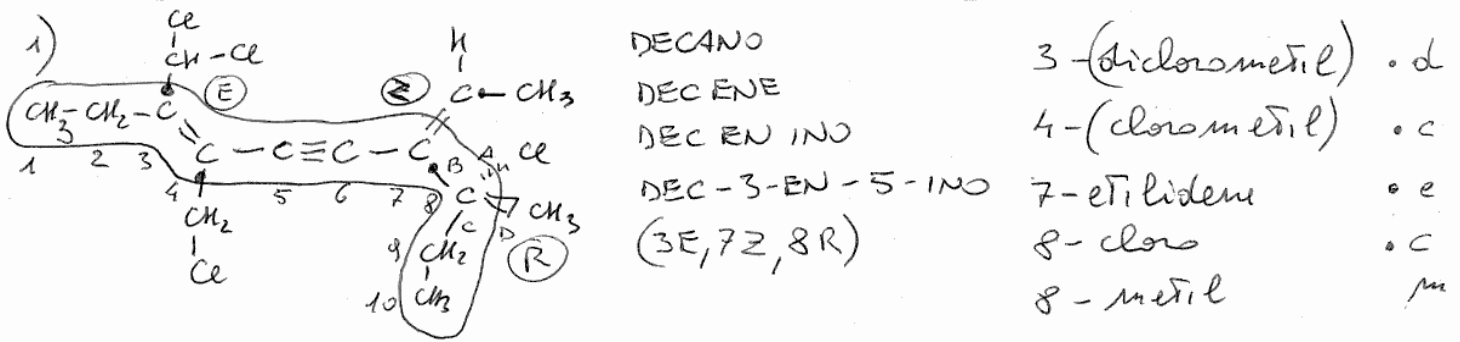 1)
Cl
CH - Cl
E
CH3 - CH2 - C
1 2 3
C - C ≡ C - C
4 5 6 7 8
CH2
Cl
H
Z
C - CH3
A Cl
B
C
C
D CH3
R
9 CH2
10 CH3
DECANO
DECENE
DEC EN INO
DEC-3-EN-5-INO
(3E,7Z,8R)
3-(diclorometil) • d
4-(clorometil) • c
7-etilidene • e
8-cloro • c
8-metil m